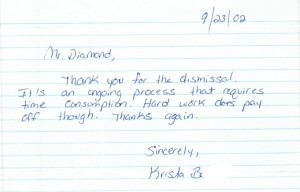 9/23/02
Mr. Diamond,
Thank you for the dismissal.
It's an ongoing process that requires
time consumption. Hard work does pay
off though. Thanks again.
Sincerely,
Krista B.